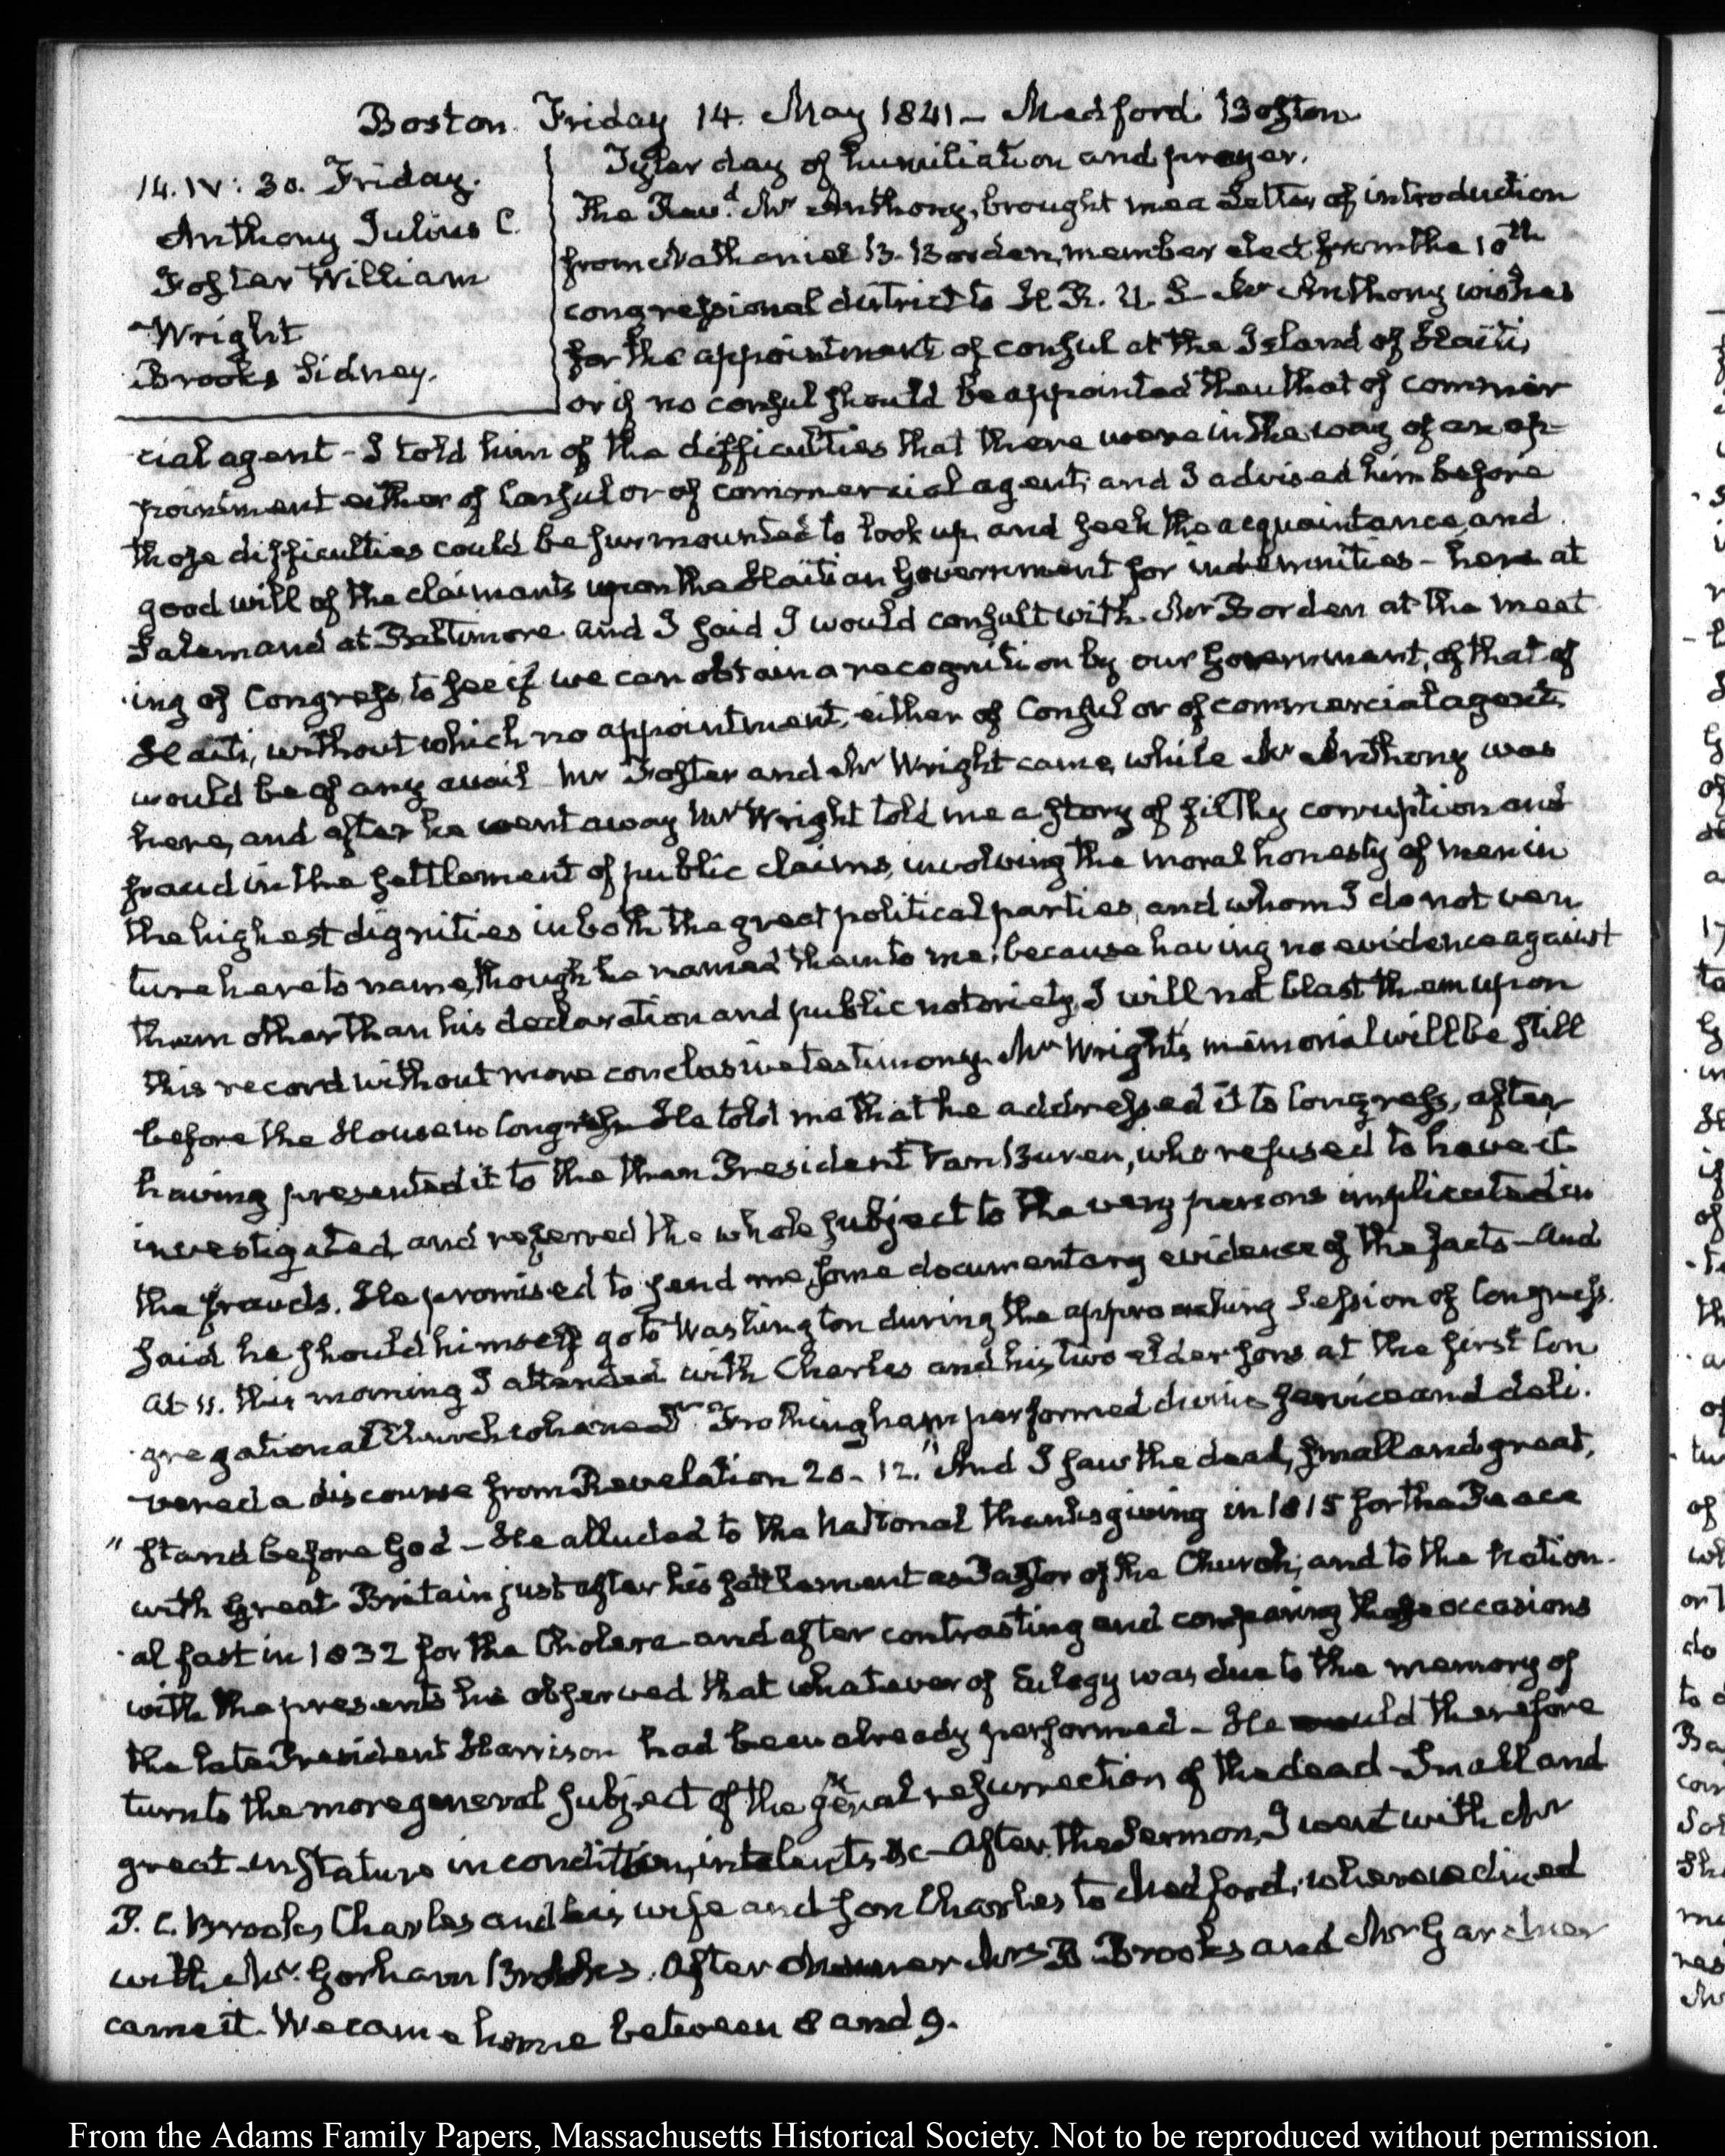 Boston. Friday 14. May 1841 – Medford. Boston
14. IV: 30. Friday.
Anthony Julius C.
Foster William
Wright
Brooks Sidney.
Tyler day of humiliation and prayer.
The Revd. Mr Anthony, brought me a Letter of introduction
from Nathaniel B. Borden, member elect from the 10th
congressional district to H. R. U. S. Mr Anthony wishes
for the appointment of consul at the Island of Haiti,
or if no consul should be appointed then that of commer
cial agent – I told him of the difficulties that there were in the way of an ap-
pointment either of Consul or of commercial agent; and I advised him before
those difficulties could be surmounted to look up, and seek the acquaintance, and
good will of the claimants upon the Haitian Government for indemnities – here at
Salem and at Baltimore and I said I would consult with Mr Borden at the meet
ing of Congress to see if we can obtain a recognition by our Government, of that of
Haiti, without which no appointment, either of Consul or of commercial agent,
would be of any avail – Mr Foster and Mr Wright came, while Mr Anthony was
here, and after he went away Mr Wright told me a story of filthy corruption and
fraud in the settlement of public claims, involving the moral honesty of men in
the highest dignities in both the great political parties, and whom I do not ven
ture here to name, though he named them to me; because having no evidence against
them other than his declaration and public notoriety, I will not blast them upon
this record without more conclusive testimony. Mr Wright's memorial will be still
before the House in Congress – He told me that he addressed it to Congress, after
having presented it to the then President Van Buren, who refused to have it
investigated, and referred the whole subject to the very persons implicated in
the frauds. He promised to send me, some documentary evidence of the facts – and
said he should himself go to Washington during the approaching Session of Congress.
At 11. this morning I attended with Charles and his two elder sons at the first Con
gregational Church where Dr. Frothingham performed divine service and deli-
vered a discourse from Revelation 20. 12. "And I saw the dead, small and great,
" stand before God – He alluded to the National thanksgiving in 1815 for the Peace
with Great Britain just after his settlement as Pastor of the Church; and to the Nation-
al fast in 1832 for the Cholera – and after contrasting and comparing those occasions
with the present he observed that whatever of Eulogy was due to the memory of
the late President Harrison had been already performed – He would therefore
turn to the more general subject of the general resurrection of the dead – Small and
great – in stature in condition, in talents &c – After the Sermon, I went with Mr
P. C. Brooks, Charles and his wife and son Charles to Medford, where we dined
with Mr. Gorham Brooks. After dinner Mrs B. Brooks and Mr Gardner
came it. We came home between 8 and 9.
From the Adams Family Papers, Massachusetts Historical Society. Not to be reproduced without permission.